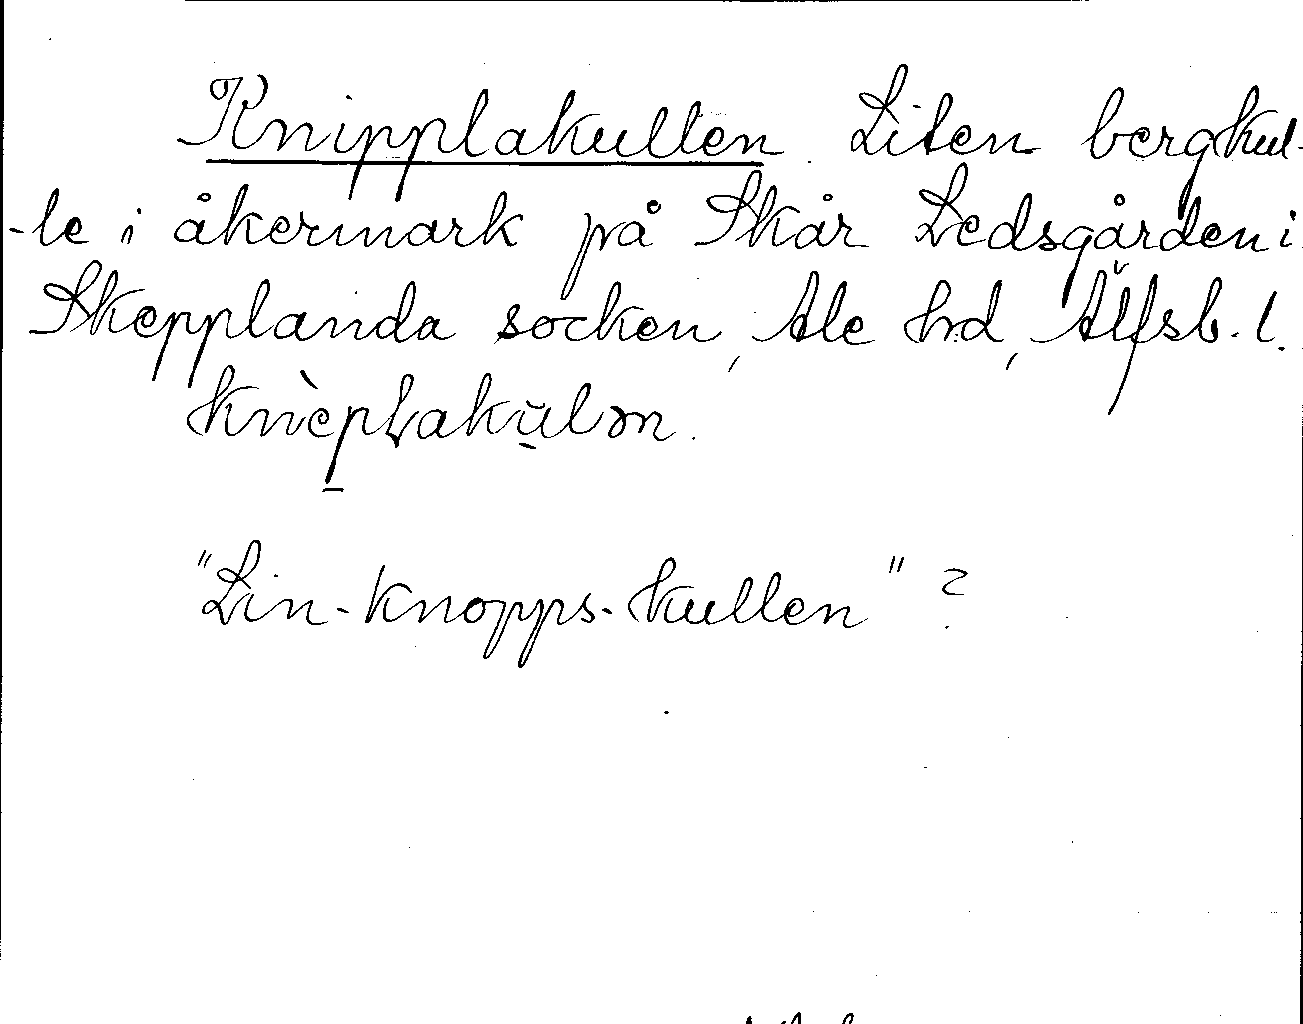 Knipplakullen. Liten bergkul-
-le i åkermark på Skår Ledsgården i
Skepplanda socken, Ale hrd, Älfsb. l.
"Lin-knopps-kullen" ?